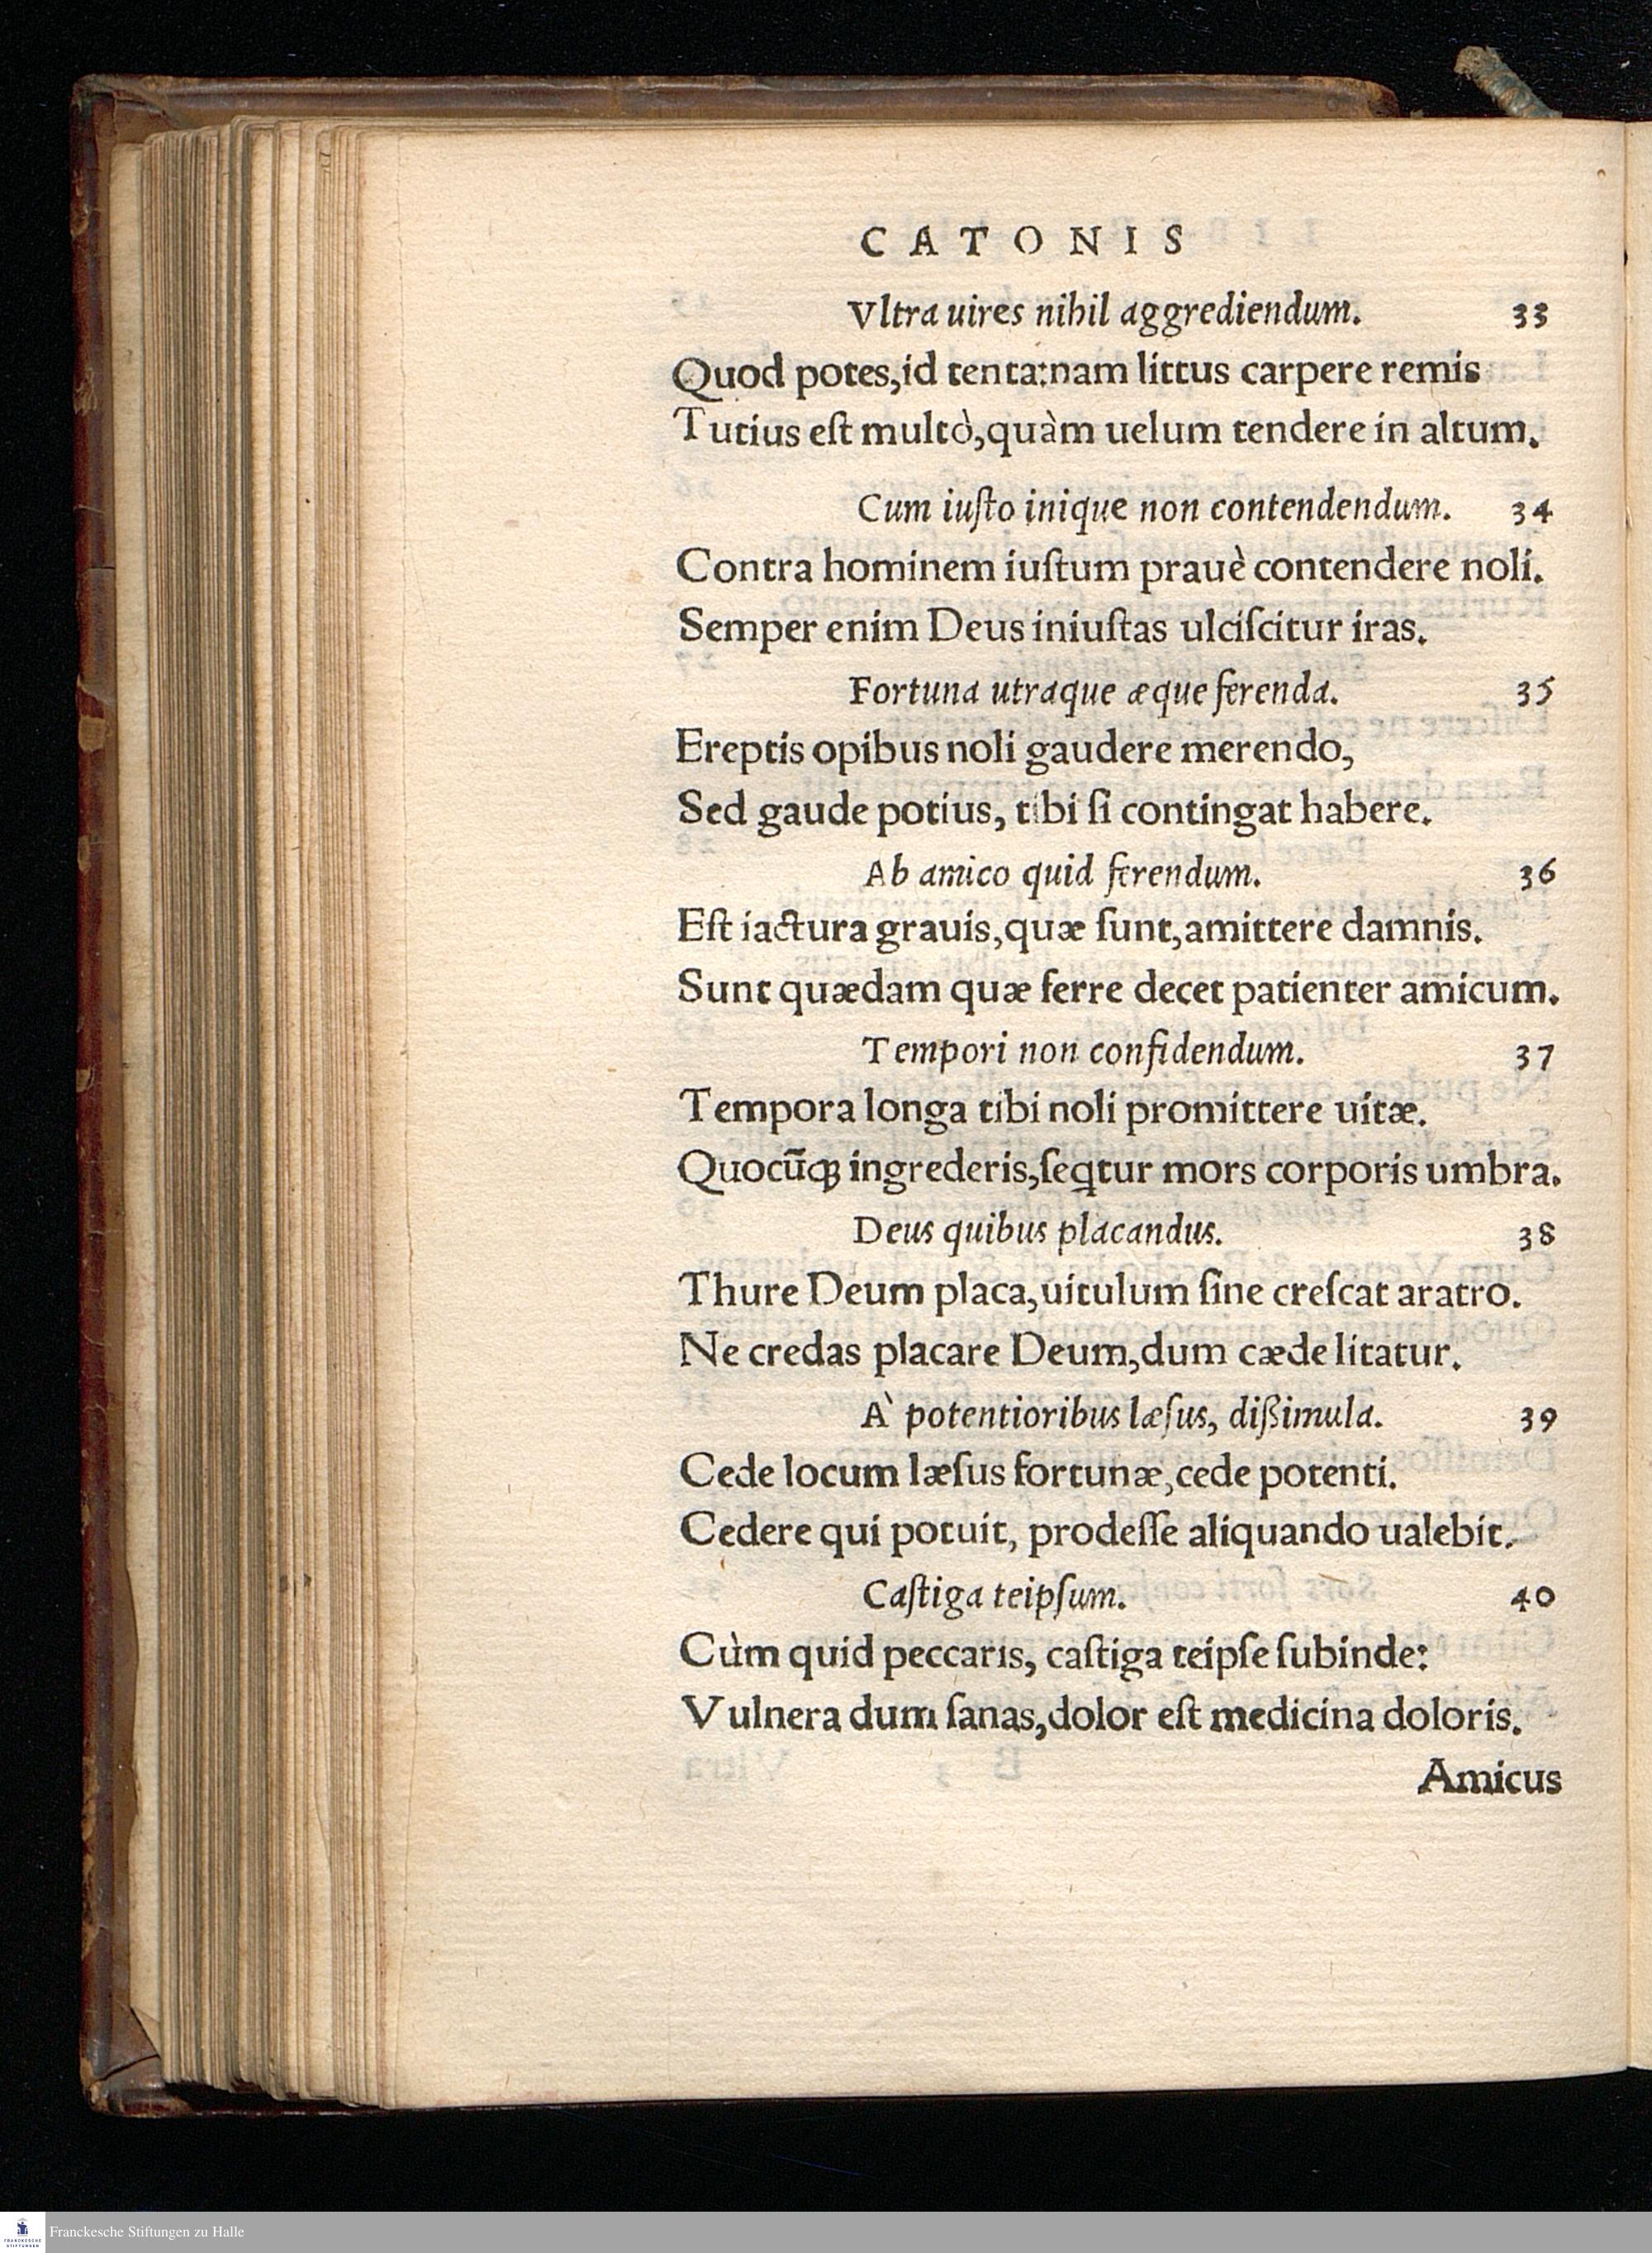 CATONIS
Vltra uires nihil aggrediendum. 33
Quod potes,id tenta:nam littus carpere remis
Tutius eſt multò,quàm uelum tendere in altum.
Cum iuſto inique non contendendum. 34
Contra hominem iuſtum prauè contendere noli.
Semper enim Deus iniuſtas ulciſcitur iras.
Fortuna utraque æque ferenda. 35
Ereptis opibus noli gaudere merendo,
Sed gaude potius, tibi ſi contingat habere.
Ab amico quid ferendum. 36
Eſt iactura grauis,quæ ſunt,amittere damnis.
Sunt quædam quæ ferre decet patienter amicum.
Tempori non confidendum. 37
Tempora longa tibi noli promittere uitæ.
Quocūqꝫ ingrederis,ſeqtur mors corporis umbra.
Deus quibus placandus. 38
Thure Deum placa,uitulum ſine creſcat aratro.
Ne credas placare Deum,dum cæde litatur.
À potentioribus læſus, dißimula. 39
Cede locum læſus fortunæ,cede potenti.
Cedere qui potuit, prodeſſe aliquando ualebit.
Caſtiga teipſum. 40
Cùm quid peccaris, caſtiga teipſe ſubinde:
Vulnera dum ſanas,dolor eſt medicina doloris.
Amicus
Franckesche Stiftungen zu Halle
FRANCKESCHE
STIFTUNGEN